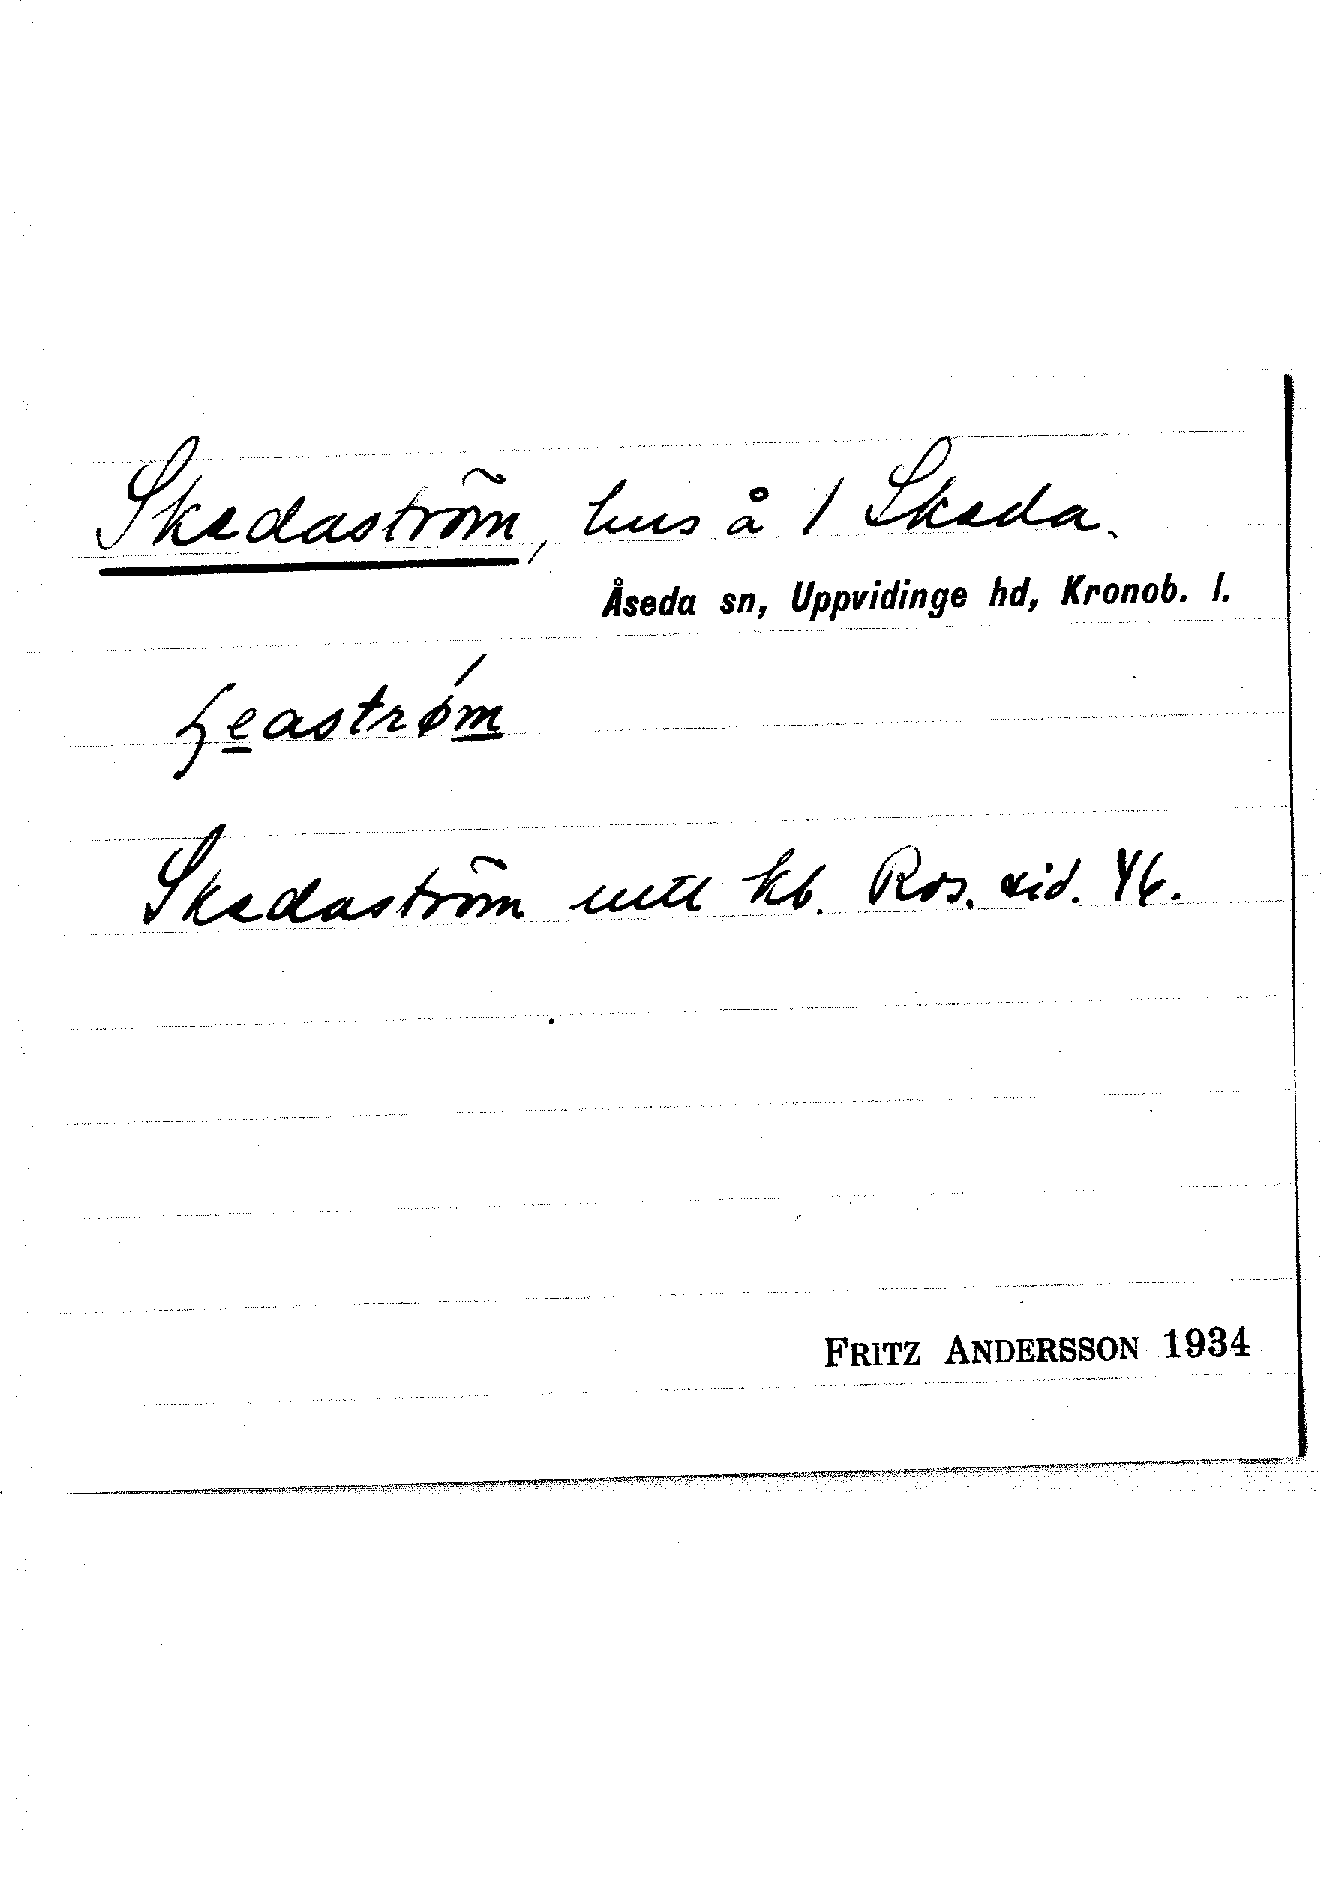 Skedaström, hus å 1 Skeda.
Åseda sn, Uppvidinge hd, Kronob. l.
ɧeaströ́m
Skedaström utt kb. Ros. sid. 46.
FRITZ ANDERSSON 1934